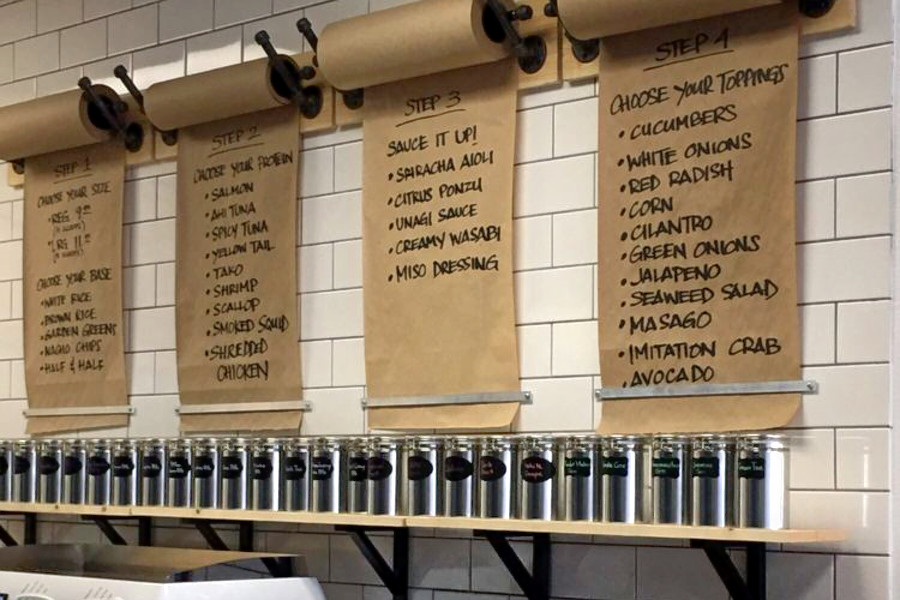 STEP 1
CHOOSE YOUR SIZE
• REG 9
• LRG 11
CHOOSE YOUR BASE
• WHITE RICE
• BROWN RICE
• GARDEN GREENS
• NACHO CHIPS
• HALF & HALF
STEP 2
CHOOSE YOUR PROTEIN
• SALMON
• AHI TUNA
• SPICY TUNA
• YELLOW TAIL
• TAKO
• SHRIMP
• SCALLOP
• SMOKED SQUID
• SHREDDED
CHICKEN
STEP 3
SAUCE IT UP!
• SRIRACHA AIOLI
• CITRUS PONZU
• UNAGI SAUCE
• CREAMY WASABI
• MISO DRESSING
STEP 4
CHOOSE YOUR TOPPINGS
• CUCUMBERS
• WHITE ONIONS
• RED RADISH
• CORN
• CILANTRO
• GREEN ONIONS
• JALAPENO
• SEAWEED SALAD
• MASAGO
• IMITATION CRAB
• AVOCADO